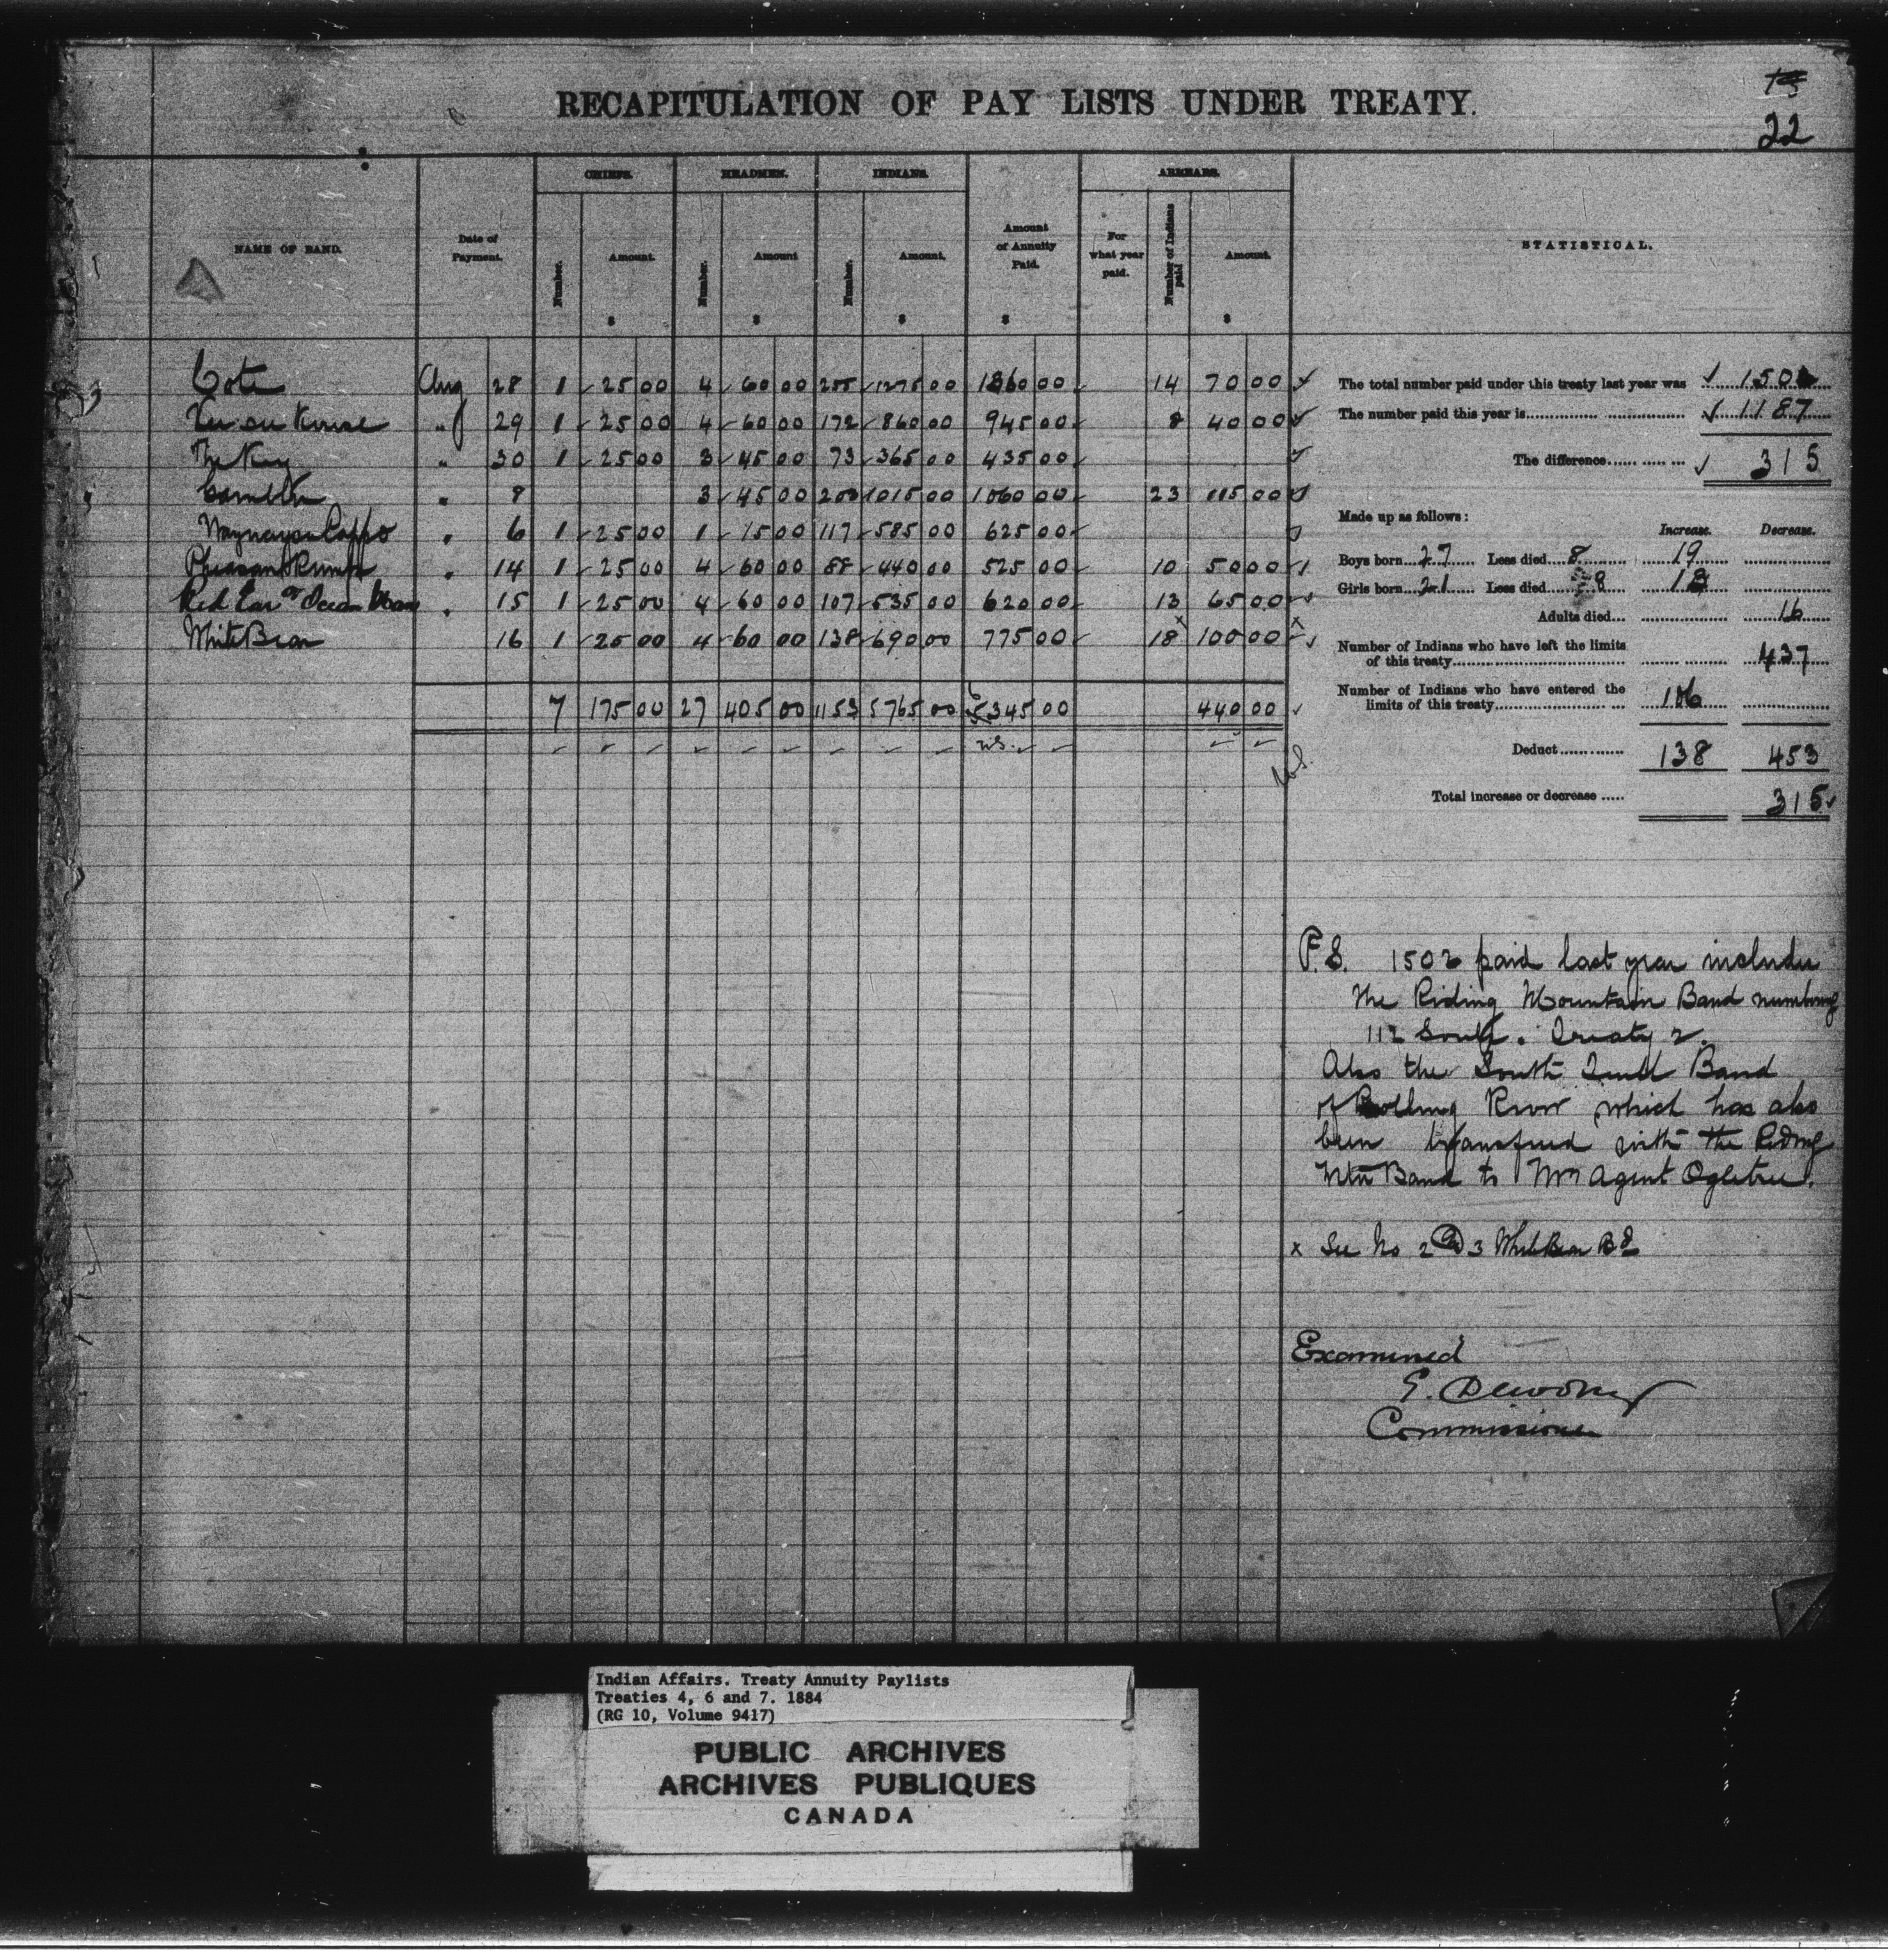 22
RECAPITULATION OF PAY LISTS UNDER TREATY.
NAME OF BAND. Date of Payment. CHIEFS. HEADMEN. INDIANS. Amount of Annuity Paid. ARREARS. STATISTICAL.
Number. Amount. Number. Amount Number. Amount. For what year paid. Number of Indians paid Amount.
$ $ $ $ $
Cote Aug 28 1 25 00 4 60 00 255 1275 00 1360 00 14 70 00
" 29 1 25 00 4 60 00 172 860 00 945 00 8 40 00
The Key " 30 1 25 00 3 45 00 73 365 00 435 00
Gambler " 8 3 45 00 203 1015 00 1060 00 23 115 00
" 6 1 25 00 1 15 00 117 585 00 625 00
Pheasant Rump " 14 1 25 00 4 60 00 88 440 00 525 00 10 50 00
Red Ear or Ocean Man " 15 1 25 00 4 60 00 107 535 00 620 00 13 65 00
White Bear 16 1 25 00 4 60 00 138 690 00 775 00 18 x 100 00 x
7 175 00 27 405 00 1153 5765 00 6345 00 440 00
The total number paid under this treaty last year was 1502
The number paid this year is 1187
The difference 315
Made up as follows:
Increase. Decrease.
Boys born 27 Less died 8 19
Girls born 21 Less died 8 13
Adults died 16
Number of Indians who have left the limits
of this treaty 437
Number of Indians who have entered the
limits of this treaty 106
Deduct 138 453
Total increase or decrease 315
P.S. 1502 paid last year includes
the Riding Mountain Band numbering
112 Souls. Treaty 2.
Also the South Quill Band
of Rolling River which has also
been transferred with the Riding
Mtn Band to Mr Agent Ogletree.
x See No 2 & 3 White Bear Bd
Examined
E. Dewdney
Commissioner
Indian Affairs. Treaty Annuity Paylists
Treaties 4, 6 and 7. 1884
(RG 10, Volume 9417)
PUBLIC ARCHIVES
ARCHIVES PUBLIQUES
CANADA